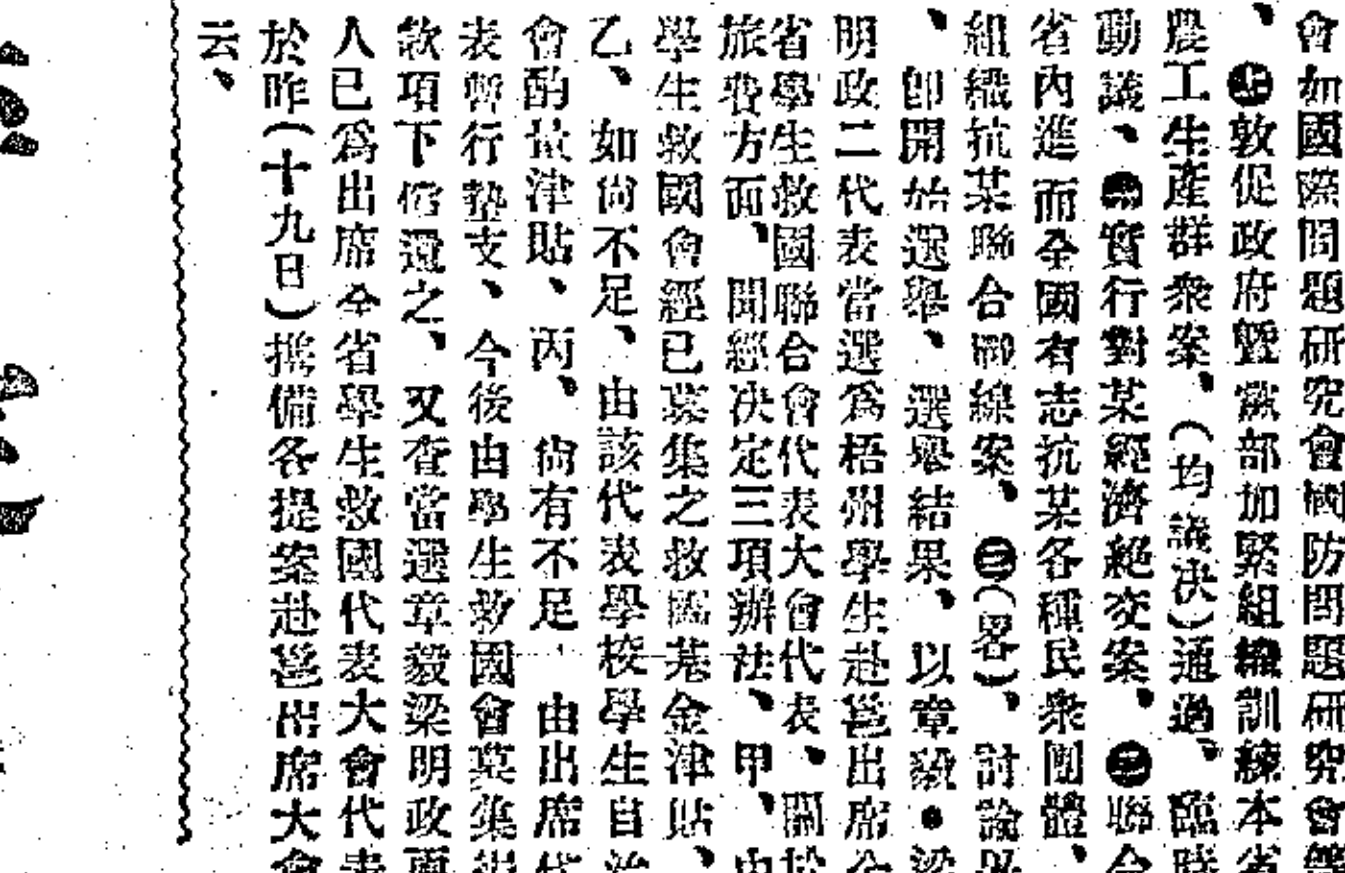 會如國際問題研究會國防問題研究會等
、㊤敦促政府曁黨部加緊組織訓練本省
農工生產群衆案、(均議决)通過、臨時
動議、實行對某經濟絕交案、㊁聯合
省內進而全國有志抗某各種民衆團體、
組織抗某聯合戰線案、㊂(畧)、討論畢
、卽開始選舉、選舉結果、以章毅●梁
明政二代表當選爲梧州學生赴邕出席全
省學生救國聯合會代表大會代表、關於
旅費方面、聞經决定三項辦法、甲、由
學生救國會經已募集之救國基金津貼、
乙、如尙不足、由該代表學校學生自治
會酌量津貼、丙、尙有不足 由出席代
表暫行墊支、今後由學生救國會募集
款項下償還之、又查當選章毅梁明政兩
人已爲出席全省學生救國代表大會代表
於昨(十九日)携備各提案赴邕出席大會
云、